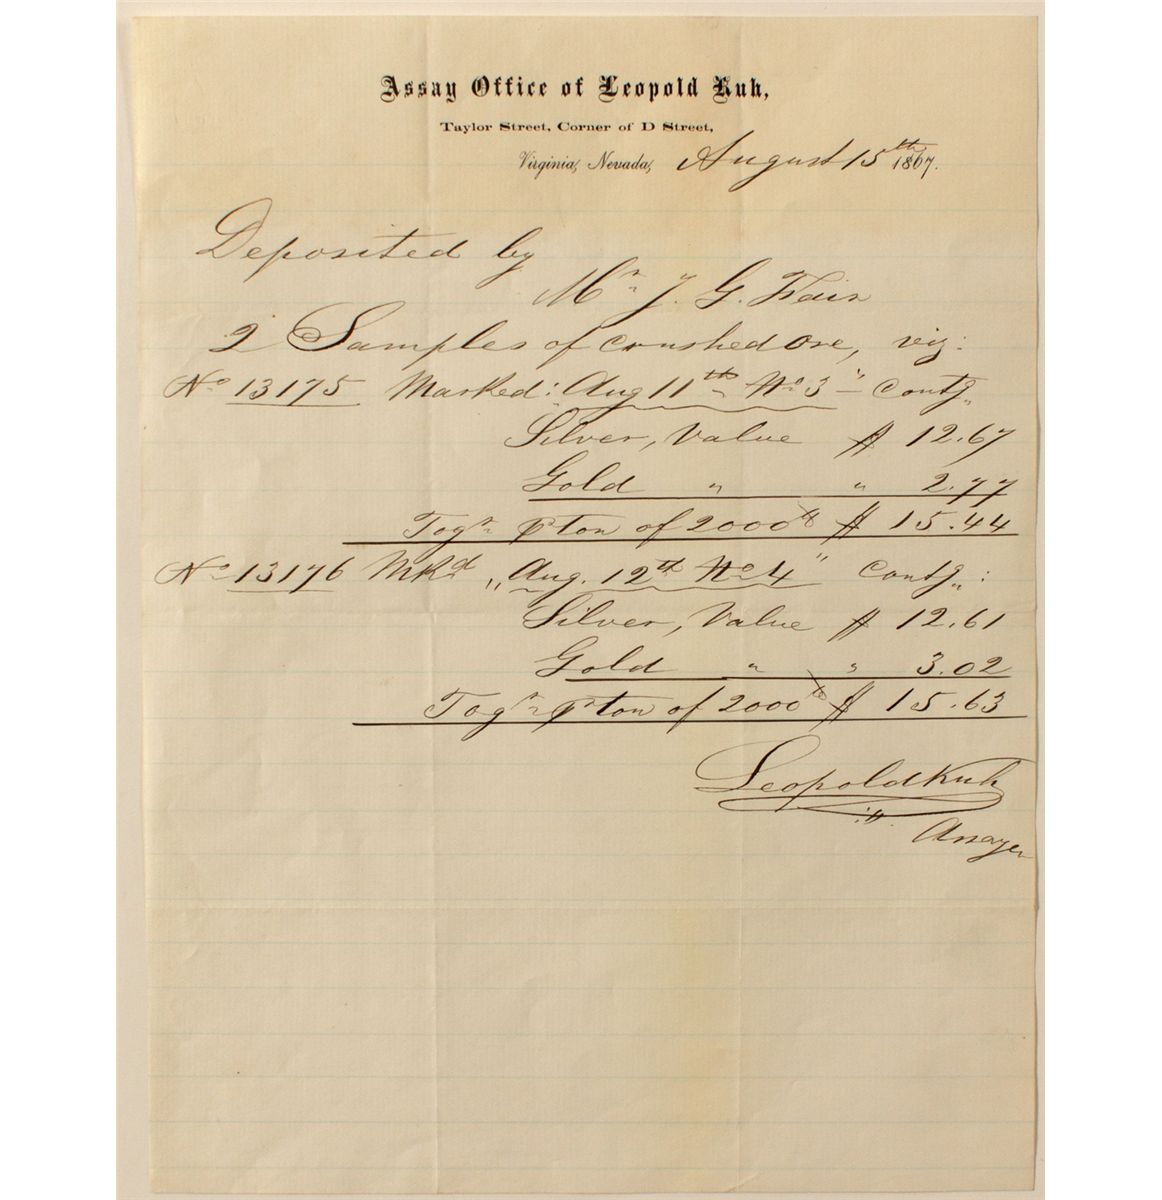 Assay Office of Leopold Kuh,
Taylor Street, Corner of D Street,
Virginia, Nevada, August 15th 1867.
Deposited by
Mr J. G. Fair
2 Samples of crushed ore, viz:
No 13175 Marked: "Aug 11th No 3" contg
Silver, Value $ 12.67
Gold " " 2.77
Togr pr ton of 2000 lb $ 15.44
No 13176 Mkd "Aug. 12th No 4" contg:
Silver, Value $ 12.61
Gold " " 3.02
Togr pr ton of 2000 lb $ 15.63
Leopold Kuh
Assayer